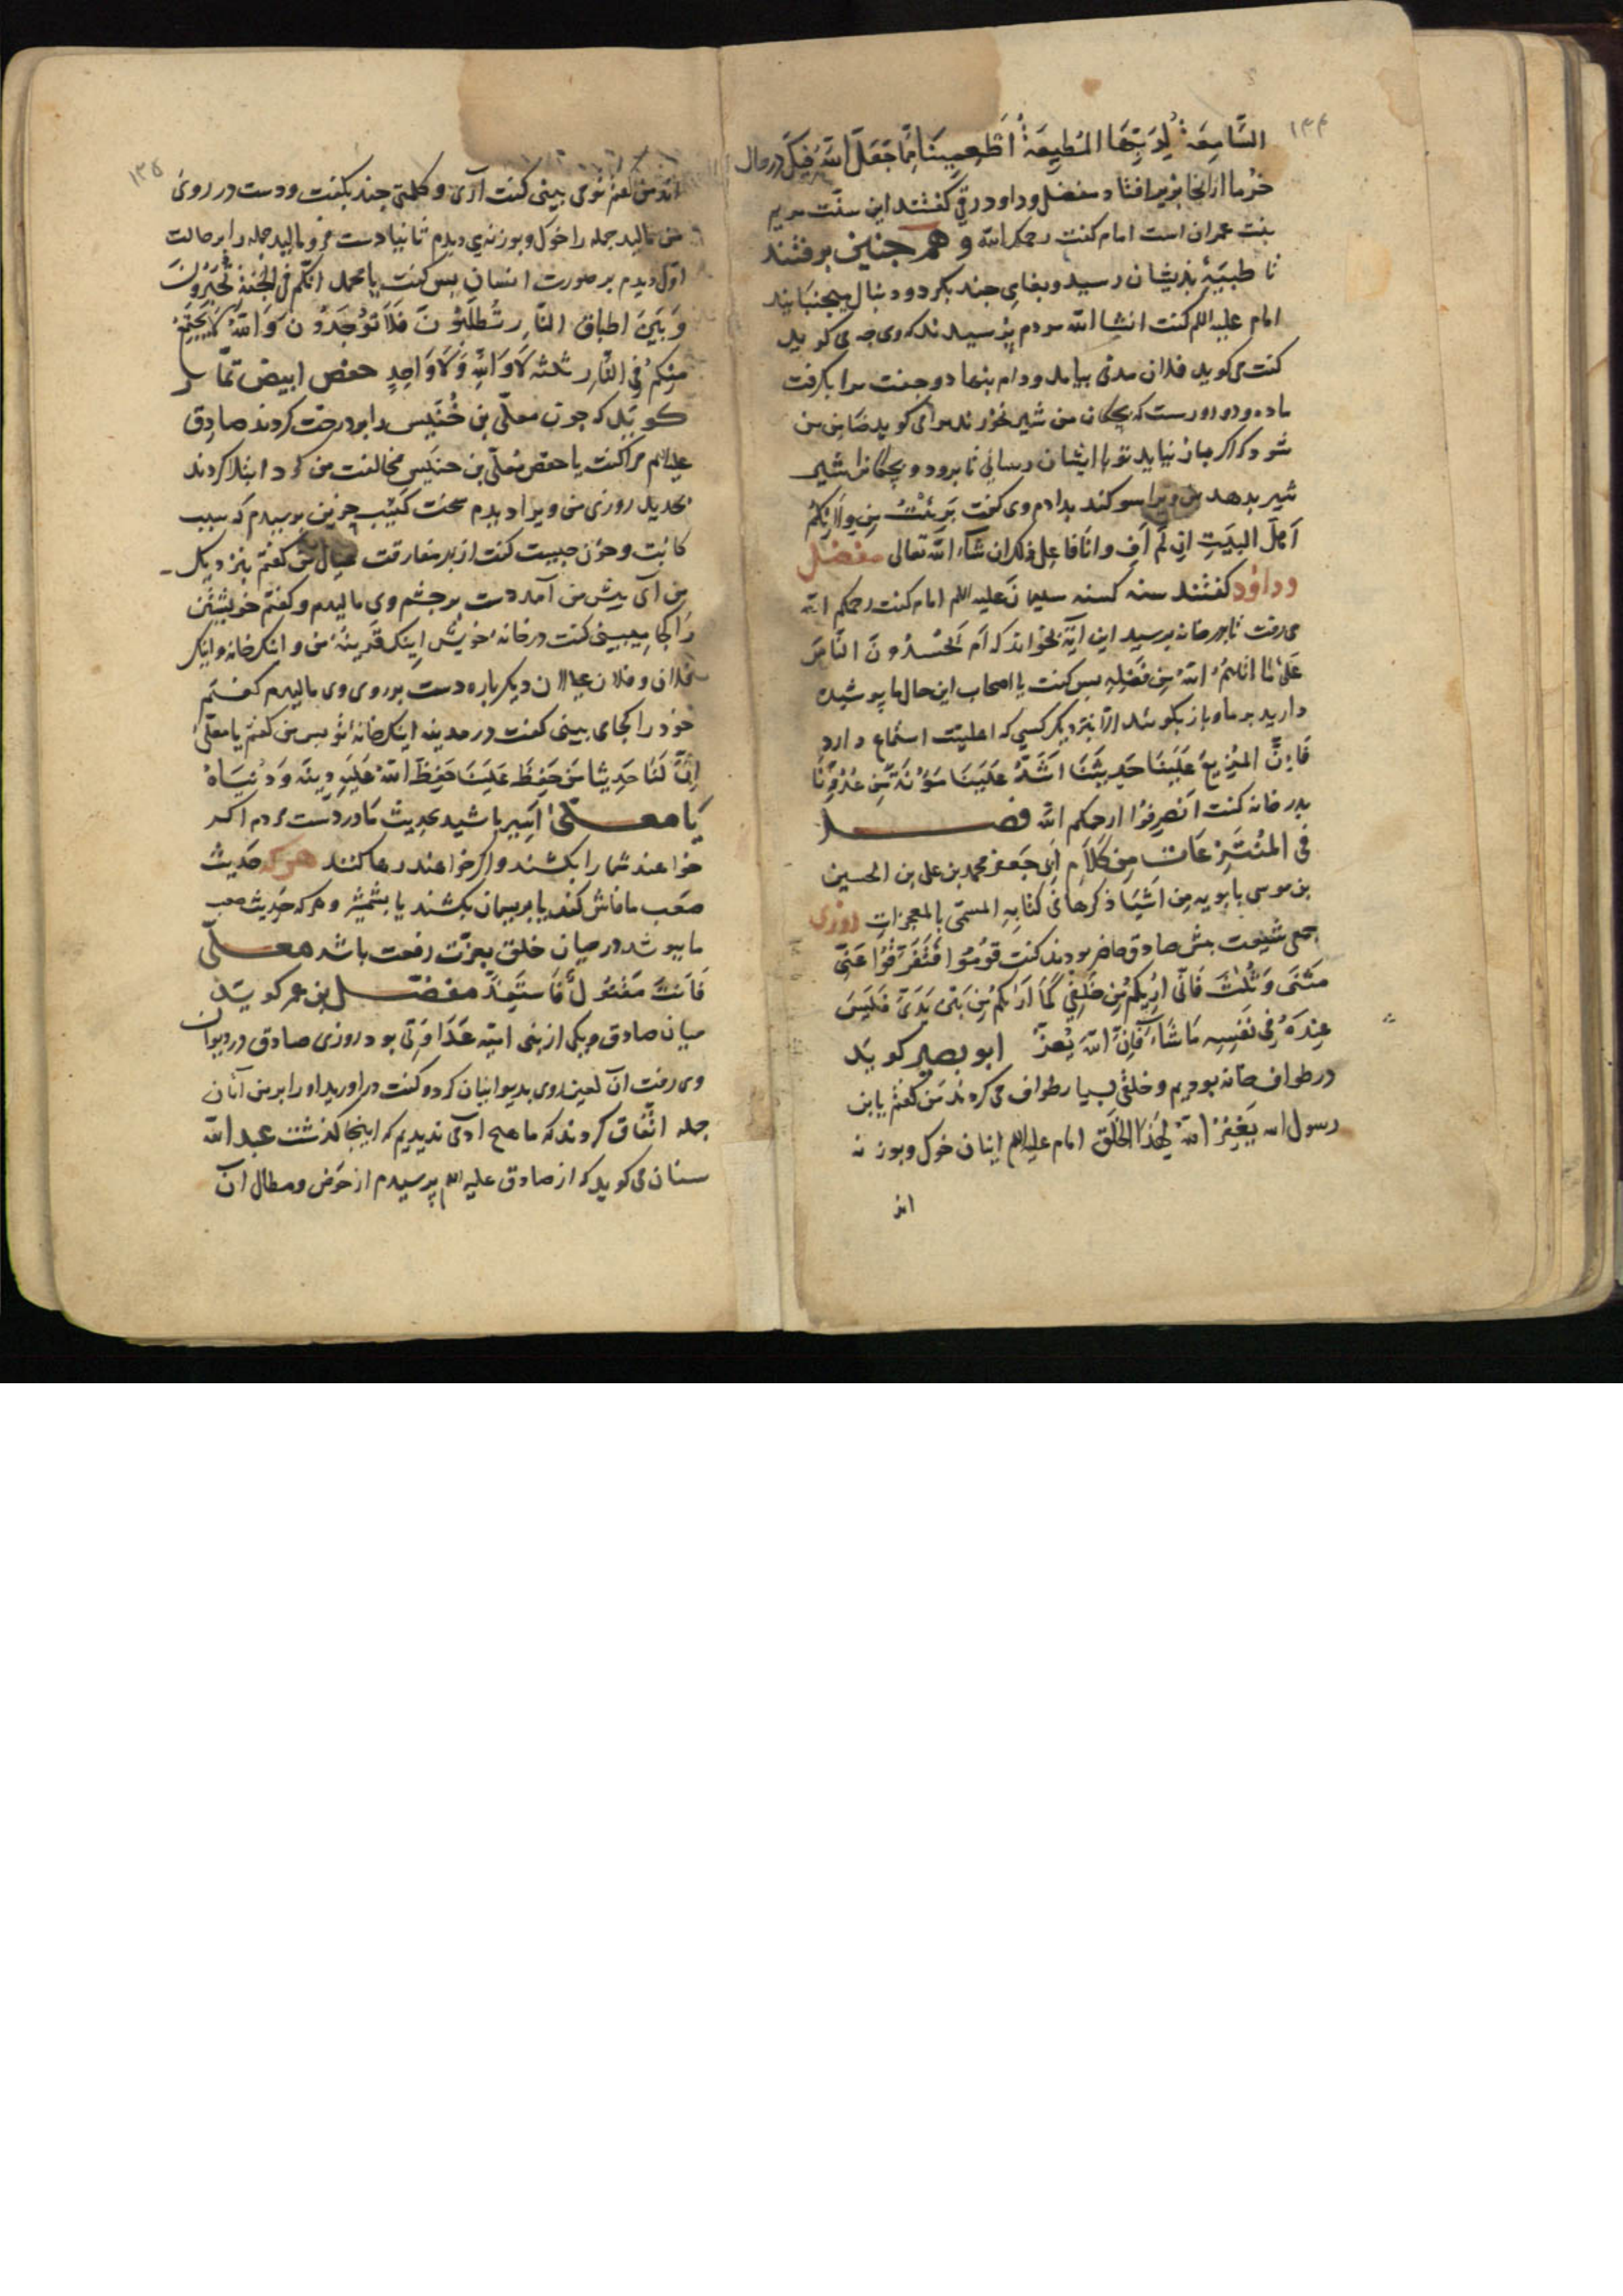 ۱۳۴
السَّامِعَةُ لِرَبِّهَا المُطِيعَةُ أَطْعِمِينَا مِمَّا جَعَلَ اللهُ فِيكِ در حال
خرما از آنجا بزیر افتاد مفضل و داود رقی گفتند این سنّت مریم
بنت عمران است امام کفت رحمکم الله و هم چنین برفتند
تا ظبیهٔ بدیشان رسید و بغای چند بکرد و دنبال میجنبانید
امام علیه السلم کفت انشا الله مردم پرسیدند که وی چه می کوید
کفت می کوید فلان مدنی بیامد و دام بنهاد و جفت مرا بکرفت
ماده و دو دورست که بچکان من شیر نخورند مرا می کوید ضامن من
شو که اکر باز نیاید تو با ایشان رسانی تا برود و بچکانرا شیر
شیر بدهد من ویرا سوکند بدادم وی کفت بَرِئْتُ مِنْ وِلَایَتِکُمْ
اَهْلَ الْبَیْتِ اِنْ لَمْ اَفِ وانا فاعل ذلک ان شاء الله تعالی مفضل
و داود کفتند سنه کسنه سلیمان علیه السلم امام کفت رحمکم الله
می رفت تا بدر خانه برسید این آیة بخواند که اَمْ یَحْسُدُونَ النَّاسَ
عَلَیٰ مَا اتَاهُمُ اللهُ مِنْ فَضْلِهِ پس کفت یا اصحاب این حال ما پوشیده
دارید بر ما و باز بکوئید الّا بنزدیک کسی که اهلیّت استماع دارد
فَاِنَّ المُذِیعَ عَلَیْنَا حَدِیثَنَا اَشَدُّ عَلَیْنَا مَؤُنَةً مِنْ عَدُوِّنَا
بدر خانه کفت اَنْصَرِفُوا ارحمکم الله فصل
فی المُنْتَزِعَات مِنْ کَلَامِ اَبِی جَعفر محمد بن علی بن الحسین
بن موسی بابویه مِن اَشْیَا ذکرها فی کتابِهِ المسمّی بالمعجزات روزی
جمعی شیعت پیش صادق حاضر بودند کفت قُومُوا فَتَفَرَّقُوا عَنِّی
مَثْنَی وَ ثُلٰثَ فَانّی اَرَیکُمْ مِنْ خَلْفِی کَمَا اَرَاکُمْ مِنْ بَیْنِ یَدَیَّ فَلْیُسِرَّ
عَبْدَهُ فِی نَفْسِهِ مَا شَآءَ فَاِنَّ اللهَ یُعَزِّ ابو بصیر کوید
در طواف خانه بودیم و خلقی بسیار طواف می کردند من کفتم یا بن
رسول الله یَغْفِرُ اللهُ لِهٰذَا الْخَلْق امام علیه السلم اینان خوک و بوزنه
اند
۱۳۵
اند من کفتم نومی بینی کفت آری و کلمتی چند بکفت و دست در روی
من مالید جمله را خوک و بوزنه ی دیدم ثانیا دست فرو مالید جمله را بر حالت
اوّل دیدم بر صورت انسان پس کفت یا محمد انّکم فی الجَنَّةِ تُحْبَرُونَ
وَ بَیْنَ اطباق النَّارِ تُطْلَبُونَ فَلَا تُوْجَدُونَ وَ اللهُ لَا یَجْتَمِعُ
مِنْکُمْ فِی النَّارِ ثلثه لَا وَ اللهِ وَ لَا وَاحِدٍ حفص ابیض تمّار
کوید که چون معلّی بن خُنَیْس را بر درخت کردند صادق
علیه السلم مرا کفت یا حفص معلّی بن خنیس مخالفت من کرد ابتلا کردند
بحدید روزی من ویرا دیدم سخت کَئِیب حزین پرسیدم که سبب
کابت و حزن چیست کفت از بهر مفارقت عیال من کفتم بنزدیک
من آی پیش من آمد دست بر چشم وی مالیدم و کفتم خویشتن
را کجا میبینی کفت در خانهٔ خویش اینک قرینهٔ من و اینک خانه و اینک
فلان و فلان عیالان دیکر باره دست بر روی وی مالیدم کفتم
خود را کجا می بینی کفت در مدینه اینک خانهٔ تو پس من کفتم یا معلّی
اِنَّ لَنَا حَدِیثا مَنْ حَفِظَ عَلَیْنَا حَفِظَ اللهُ عَلَیْهِ دِینَهُ وَ دُنْیَاهُ
یَا معلّی اَسِیر باشید بحدیث ما در دست مردم اکر
خواهند شما را بکشند و اکر خواهند رها کنند هر که حدیث
صعب ما فاش کند یا بریسمان بکشند یا بشمشیر و هر که حدیث صعب
ما بپوشد در میان خلق بعزّت رفعت باشد معلّی
فَاَنْتَ مَقْتُولٌ فَاسْتَعِدَّ مفضّل بن عمر کوید
میان صادق و یکی از بنی امیّه عَدَاوَتی بود روزی صادق در دیوان
وی رفت آن لعین روی بدیوانیان کرد و کفت در اورید او را بر من آنان
جمله اتّفاق کردند که ما هیچ ادمی ندیدیم که اینجا کذشت عبد الله
سنان می کوید که از صادق علیه السلم پرسیدم از حوض و مطال آن